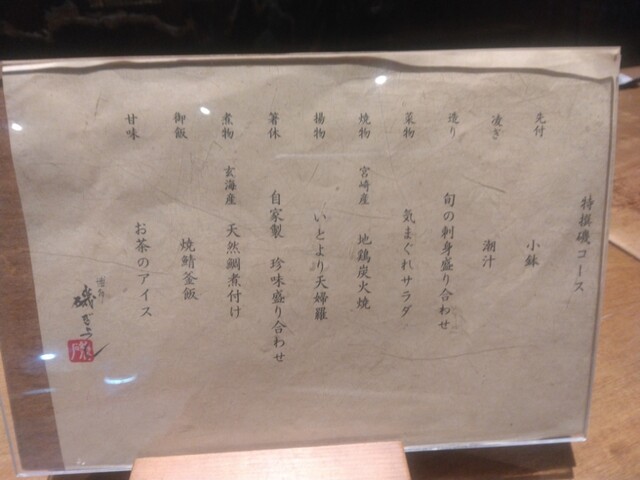 特撰磯コース
先付 小鉢
凌ぎ 潮汁
造り 旬の刺身盛り合わせ
菜物 気まぐれサラダ
焼物 宮崎産 地鶏炭火焼
揚物 いとより天婦羅
箸休 自家製 珍味盛り合わせ
煮物 玄海産 天然鯛煮付け
御飯 焼鯖釜飯
甘味 お茶のアイス